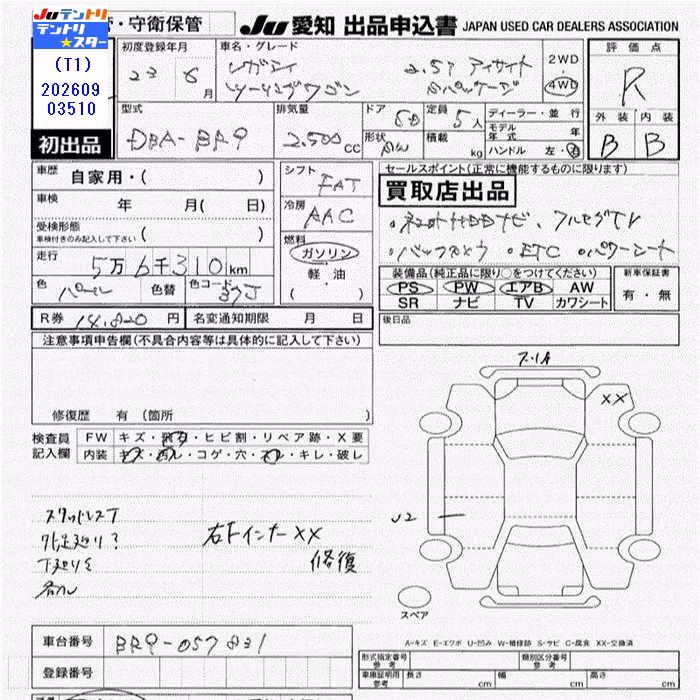 テントリ
・守衛保管
テントリ★スター
(T1)
202609
03510
初出品
JU 愛知 出品申込書 JAPAN USED CAR DEALERS ASSOCIATION
初度登録年月
23 6月
車名・グレード
レガシィ 2.5i アイサイト
ツーリングワゴン Sパッケージ
2WD
4WD
評価点
R
外装 内装
B B
型式
DBA-BR9
排気量
2.500cc
ドア 5D
形状 SW
定員 5人
積載 kg
ディーラー・並行
モデル年式 年
ハンドル 左・右
車歴 自家用・( )
車検 年 月( 日)
受検形態
車検付きのみ記入して下さい ( )
走行 5万6千310km
色 パール 色替 色コード 37J
シフト FAT
冷房 AAC
燃料
ガソリン
軽・油
( )
セールスポイント(正常に機能するものに限ります)
買取店出品
・ネオHDDナビ、フルセグTV
・バックカメラ ・ETC ・パワーシート
装備品(純正品に限り○をつけてください)
PS PW エアB AW
SR ナビ TV カワシート
新車保証書
有・無
後日品
R券 14.820円 名変通知期限 月 日
注意事項申告欄(不具合内容等は具体的に記入して下さい)
修復歴 有(箇所 )
検査員記入欄
FW キズ・飛石・ヒビ割・リペア跡・X要
内装 キズ・汚レ・コゲ・穴・スレ・キレ・破レ
スタッドレスT
下廻りサ
右FインナーXX
修復
フ.1A
XX
U2
スペア
A-キズ E-エクボ U-凹み W-補修跡 S-サビ C-腐食 XX-交換済
車台番号 BR9-057831
登録番号
形式指定番号 参考
類別区分番号 参考
車庫証明用 参考 長さ cm 幅 cm 高さ cm